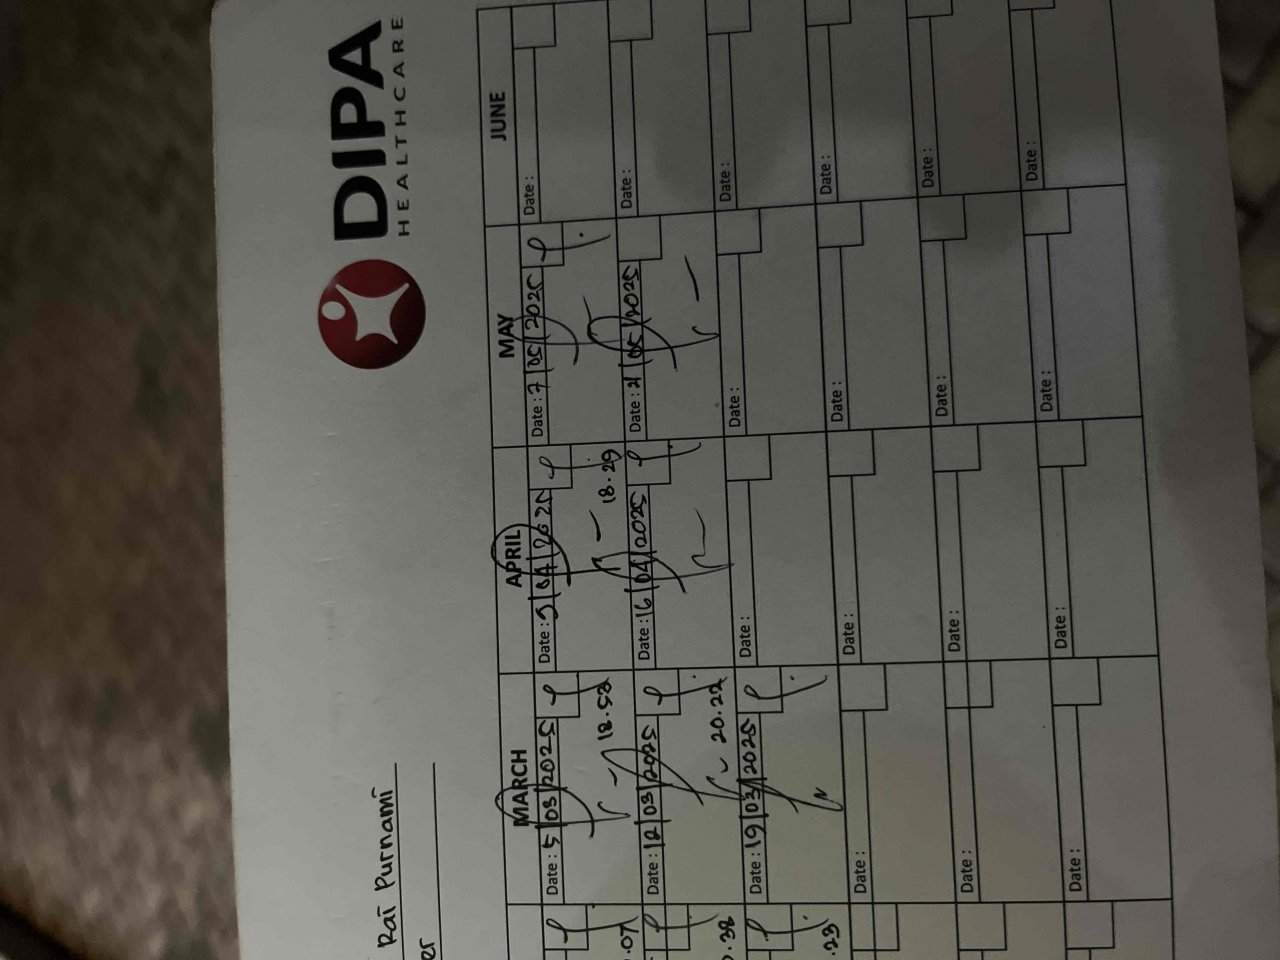 DIPA
HEALTHCARE
Rai Purnami
er
MARCH APRIL MAY JUNE
Date : 5/03/2025 Date : 9/04/2025 Date : 7/05/2025 Date :
.07 18.52 18.29
Date : 12/03/2025 Date : 16/04/2025 Date : 21/05/2025 Date :
.38 20.22
Date : 19/03/2025 Date : Date : Date :
.23
Date : Date : Date : Date :
Date : Date : Date : Date :
Date : Date : Date : Date :